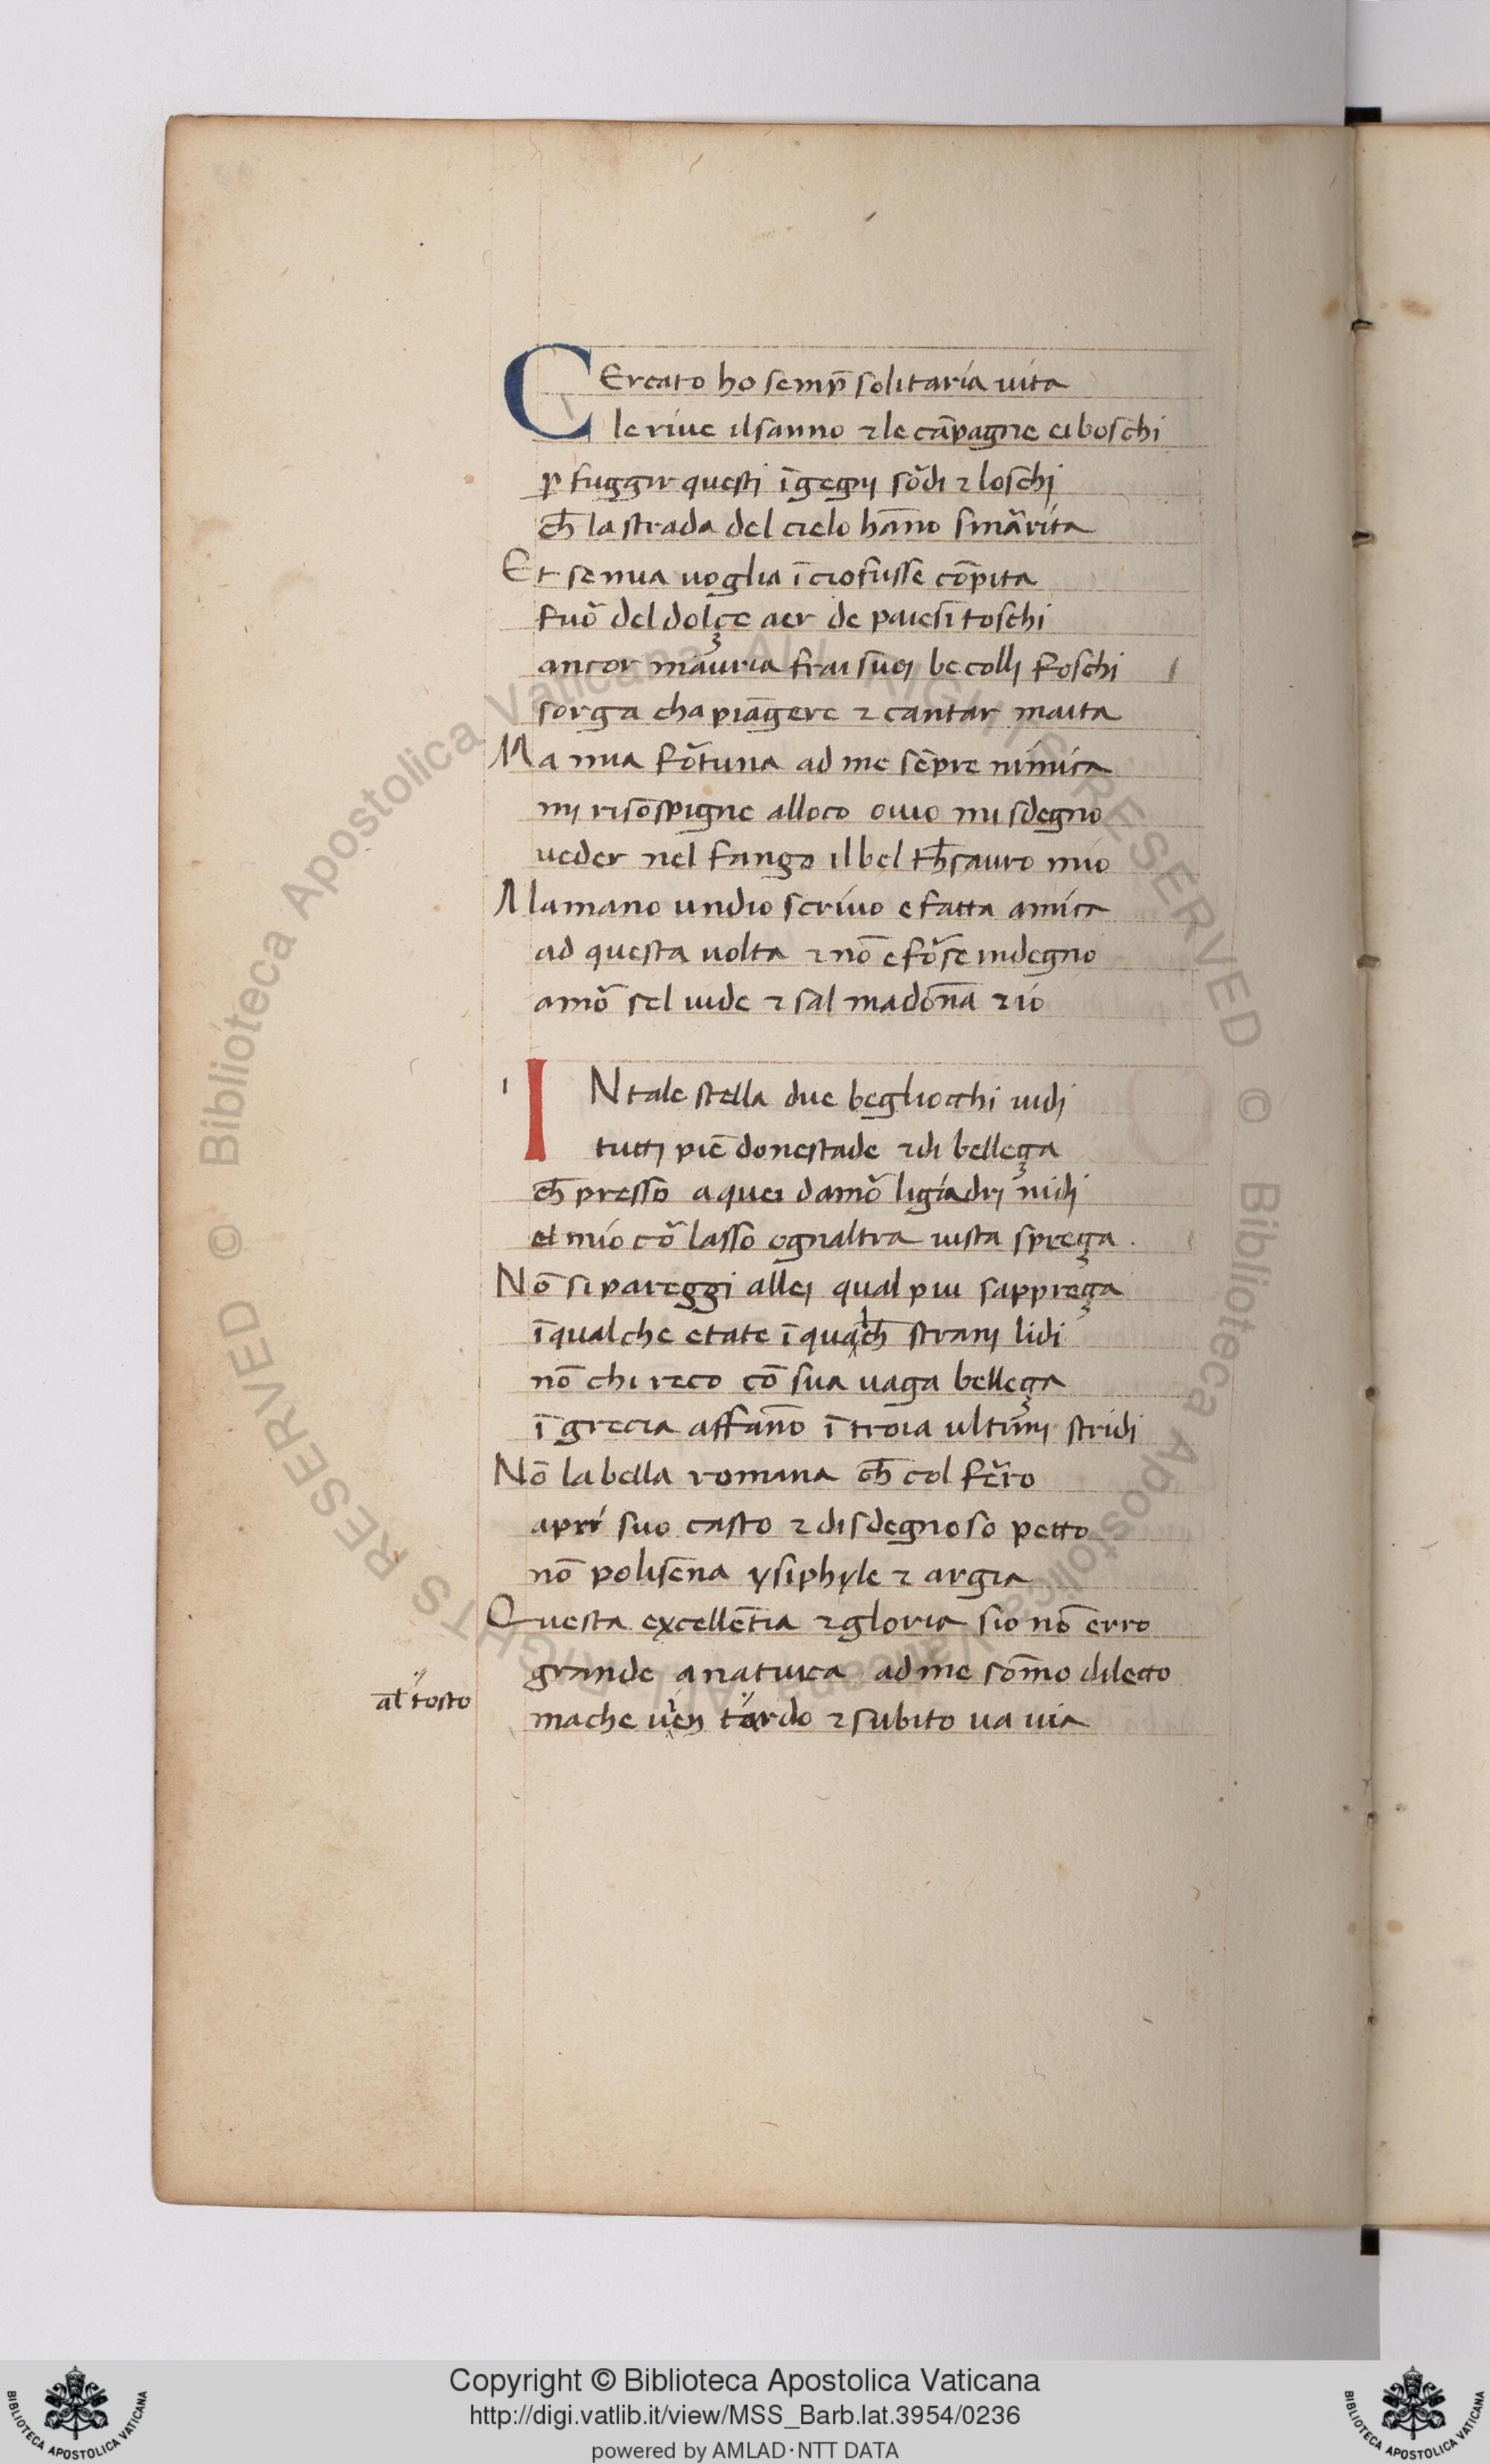 CErcato ho semp̄ solitaria uita
le riue il sanno ⁊ le cāpagne ei boschi
ꝑ fuggir questi īgegnj sōdi ⁊ loschi
ch̄ la strada del cielo hāno smārita
Et se mia uoglia ī cio fusse cōpita
fuō del dolçe aer de paiesi toschi
ancor māuria frai suoj be collj foschi
sorga cha piāgere ⁊ cantar maita
Ma mia fōtuna ad me sēpre nimica
mj risōspigne alloco ouio mi sdegno
ueder nel fango il bel th̄sauro mio
A la mano undio scriuo e fatta amica
ad questa uolta ⁊ nō e fōse indegno
amō sel uide ⁊ sal madōna ⁊ io
1
INtale stella due begliocchi uidj
tuttj piē donestade ⁊ di belleça
ch̄ presso a quei damō ligiadrj nidj
el mio cō lasso ognaltra uista spreça .
Nō si pareggi allej qual piu sappreça
ī qualche etate ī qualch̄ stranj lidi
nō chi reco cō sua uaga belleça
ī grecia affāno ī troia ultimj stridj
Nō la bella romana ch̄ col fēro
apri suo casto ⁊ disdegnoso petto
nō polisēna ysiphyle ⁊ argia
Questa excellētia ⁊ gloria sio nō erro
grande a natura ad me sōmo diletto
al̄ tosto
ma che uien tardo ⁊ subito ua uia
Copyright © Biblioteca Apostolica Vaticana
http://digi.vatlib.it/view/MSS_Barb.lat.3954/0236
powered by AMLAD·NTT DATA
BIBLIOTECA APOSTOLICA VATICANA
BIBLIOTECA APOSTOLICA VATICANA
© Biblioteca Apostolica Vaticana ALL RIGHTS RESERVED
© Biblioteca Apostolica Vaticana ALL RIGHTS RESERVED